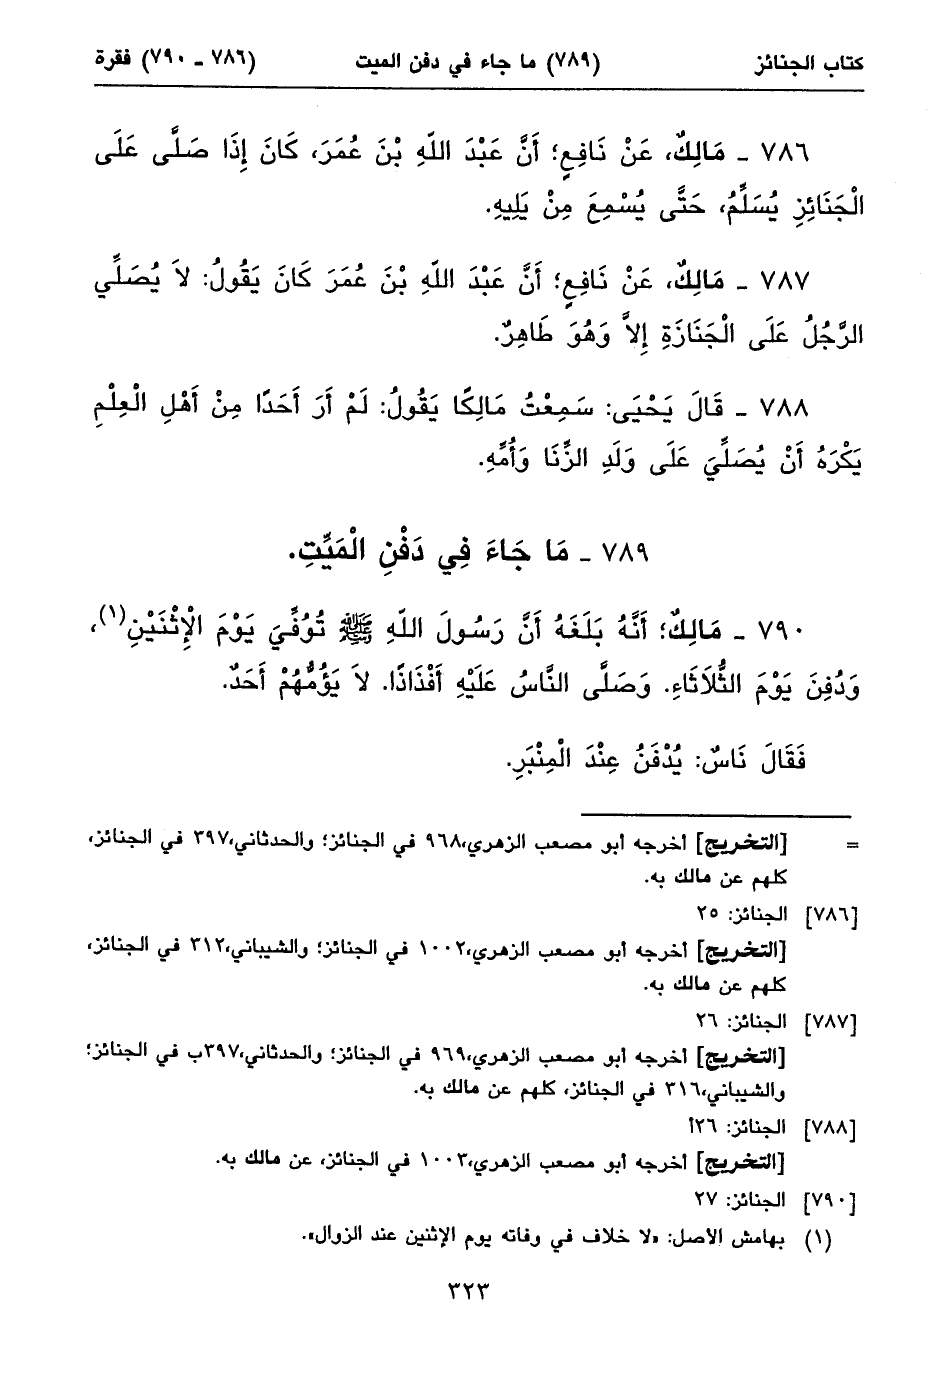 كتاب الجنائز (٧٨٩) ما جاء في دفن الميت (٧٨٦ ـ ٧٩٠) فقرة
٧٨٦ ـ مَالِكٌ، عَنْ نَافِعٍ؛ أَنَّ عَبْدَ اللّهِ بْنَ عُمَرَ، كَانَ إِذَا صَلَّى عَلَى
الْجَنَائِزِ يُسَلِّمُ، حَتَّى يُسْمِعَ مِنْ يَلِيهِ.
٧٨٧ ـ مَالِكٌ، عَنْ نَافِعٍ؛ أَنَّ عَبْدَ اللّهِ بْنَ عُمَرَ كَانَ يَقُولُ: لاَ يُصَلِّي
الرَّجُلُ عَلَى الْجَنَازَةِ إِلاَّ وَهُوَ طَاهِرٌ.
٧٨٨ ـ قَالَ يَحْيَى: سَمِعْتُ مَالِكًا يَقُولُ: لَمْ أَرَ أَحَدًا مِنْ أَهْلِ الْعِلْمِ
يَكْرَهُ أَنْ يُصَلِّيَ عَلَى وَلَدِ الزِّنَا وَأُمِّهِ.
٧٨٩ ـ مَا جَاءَ فِي دَفْنِ الْمَيِّتِ.
٧٩٠ ـ مَالِكٌ؛ أَنَّهُ بَلَغَهُ أَنَّ رَسُولَ اللّهِ ﷺ تُوُفِّيَ يَوْمَ الْإِثْنَيْنِ(١)،
وَدُفِنَ يَوْمَ الثُّلَاثَاءِ. وَصَلَّى النَّاسُ عَلَيْهِ أَفْذَاذًا. لاَ يَؤُمُّهُمْ أَحَدٌ.
فَقَالَ نَاسٌ: يُدْفَنُ عِنْدَ الْمِنْبَرِ.
= [التخريج] أخرجه أبو مصعب الزهري،٩٦٨ في الجنائز؛ والحدثاني،٣٩٧ في الجنائز،
كلهم عن مالك به.
[٧٨٦] الجنائز: ٢٥
[التخريج] أخرجه أبو مصعب الزهري،١٠٠٢ في الجنائز؛ والشيباني،٣١٢ في الجنائز،
كلهم عن مالك به.
[٧٨٧] الجنائز: ٢٦
[التخريج] أخرجه أبو مصعب الزهري،٩٦٩ في الجنائز؛ والحدثاني،٣٩٧ب في الجنائز؛
والشيباني،٣١٦ في الجنائز، كلهم عن مالك به.
[٧٨٨] الجنائز: ٢٦أ
[التخريج] أخرجه أبو مصعب الزهري،١٠٠٣ في الجنائز، عن مالك به.
[٧٩٠] الجنائز: ٢٧
(١) بهامش الأصل: «لا خلاف في وفاته يوم الإثنين عند الزوال».
٣٢٣